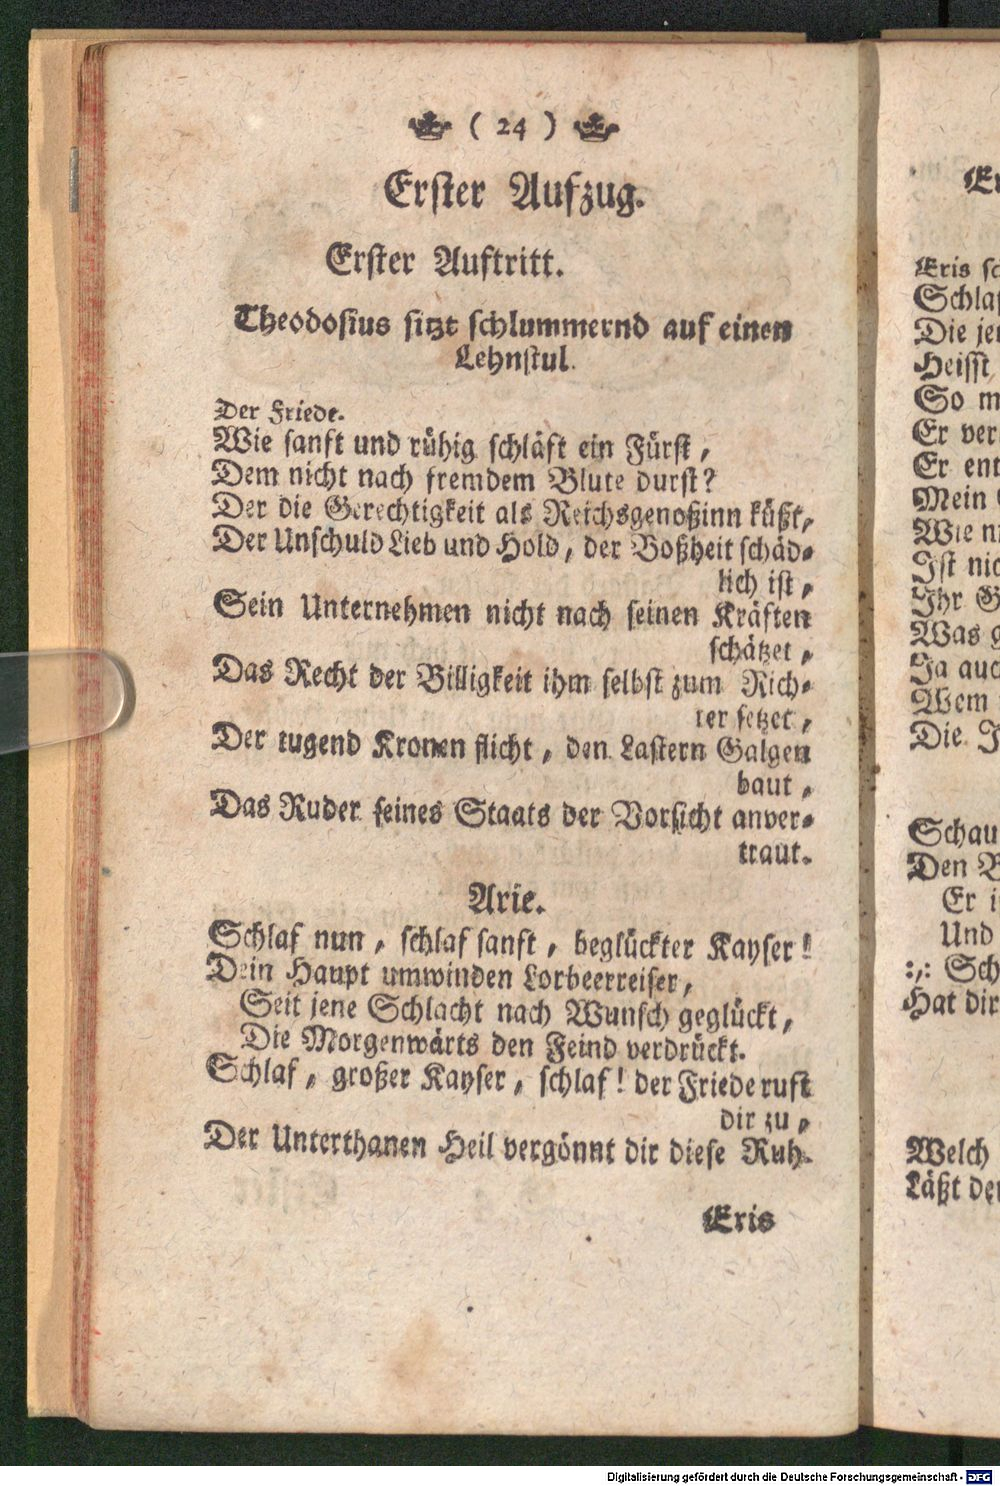 ( 24 )
Erster Aufzug.
Erster Auftritt.
Theodosius sitzt schlummernd auf einen
Lehnstul.
Der Friede.
Wie sanft und rühig schläft ein Fürst,
Dem nicht nach fremdem Blute durst?
Der die Gerechtigkeit als Reichsgenoßinn küßt,
Der Unschuld Lieb und Hold, der Boßheit schäd-
lich ist,
Sein Unternehmen nicht nach seinen Kräften
schätzet,
Das Recht der Billigkeit ihm selbst zum Rich-
ter setzet,
Der tugend Kronen flicht, den Lastern Galgen
baut,
Das Ruder seines Staats der Vorsicht anver-
traut.
Arie.
Schlaf nun, schlaf sanft, beglückter Kayser!
Dein Haupt umwinden Lorbeerreiser,
Seit jene Schlacht nach Wunsch geglückt,
Die Morgenwärts den Feind verdrückt.
Schlaf, großer Kayser, schlaf! der Friede ruft
dir zu,
Der Unterthanen Heil vergönnt dir diese Ruh.
Eris
Eris
Schlaf
Die
Heisst
So
Er
Er
Mein
Wie
Ist
Ihr
Was
Ja
Wem
Die
Schau
Den
Er
Und
:,:
Hat dir
Welch
Läßt
Digitalisierung gefördert durch die Deutsche Forschungsgemeinschaft - DFG